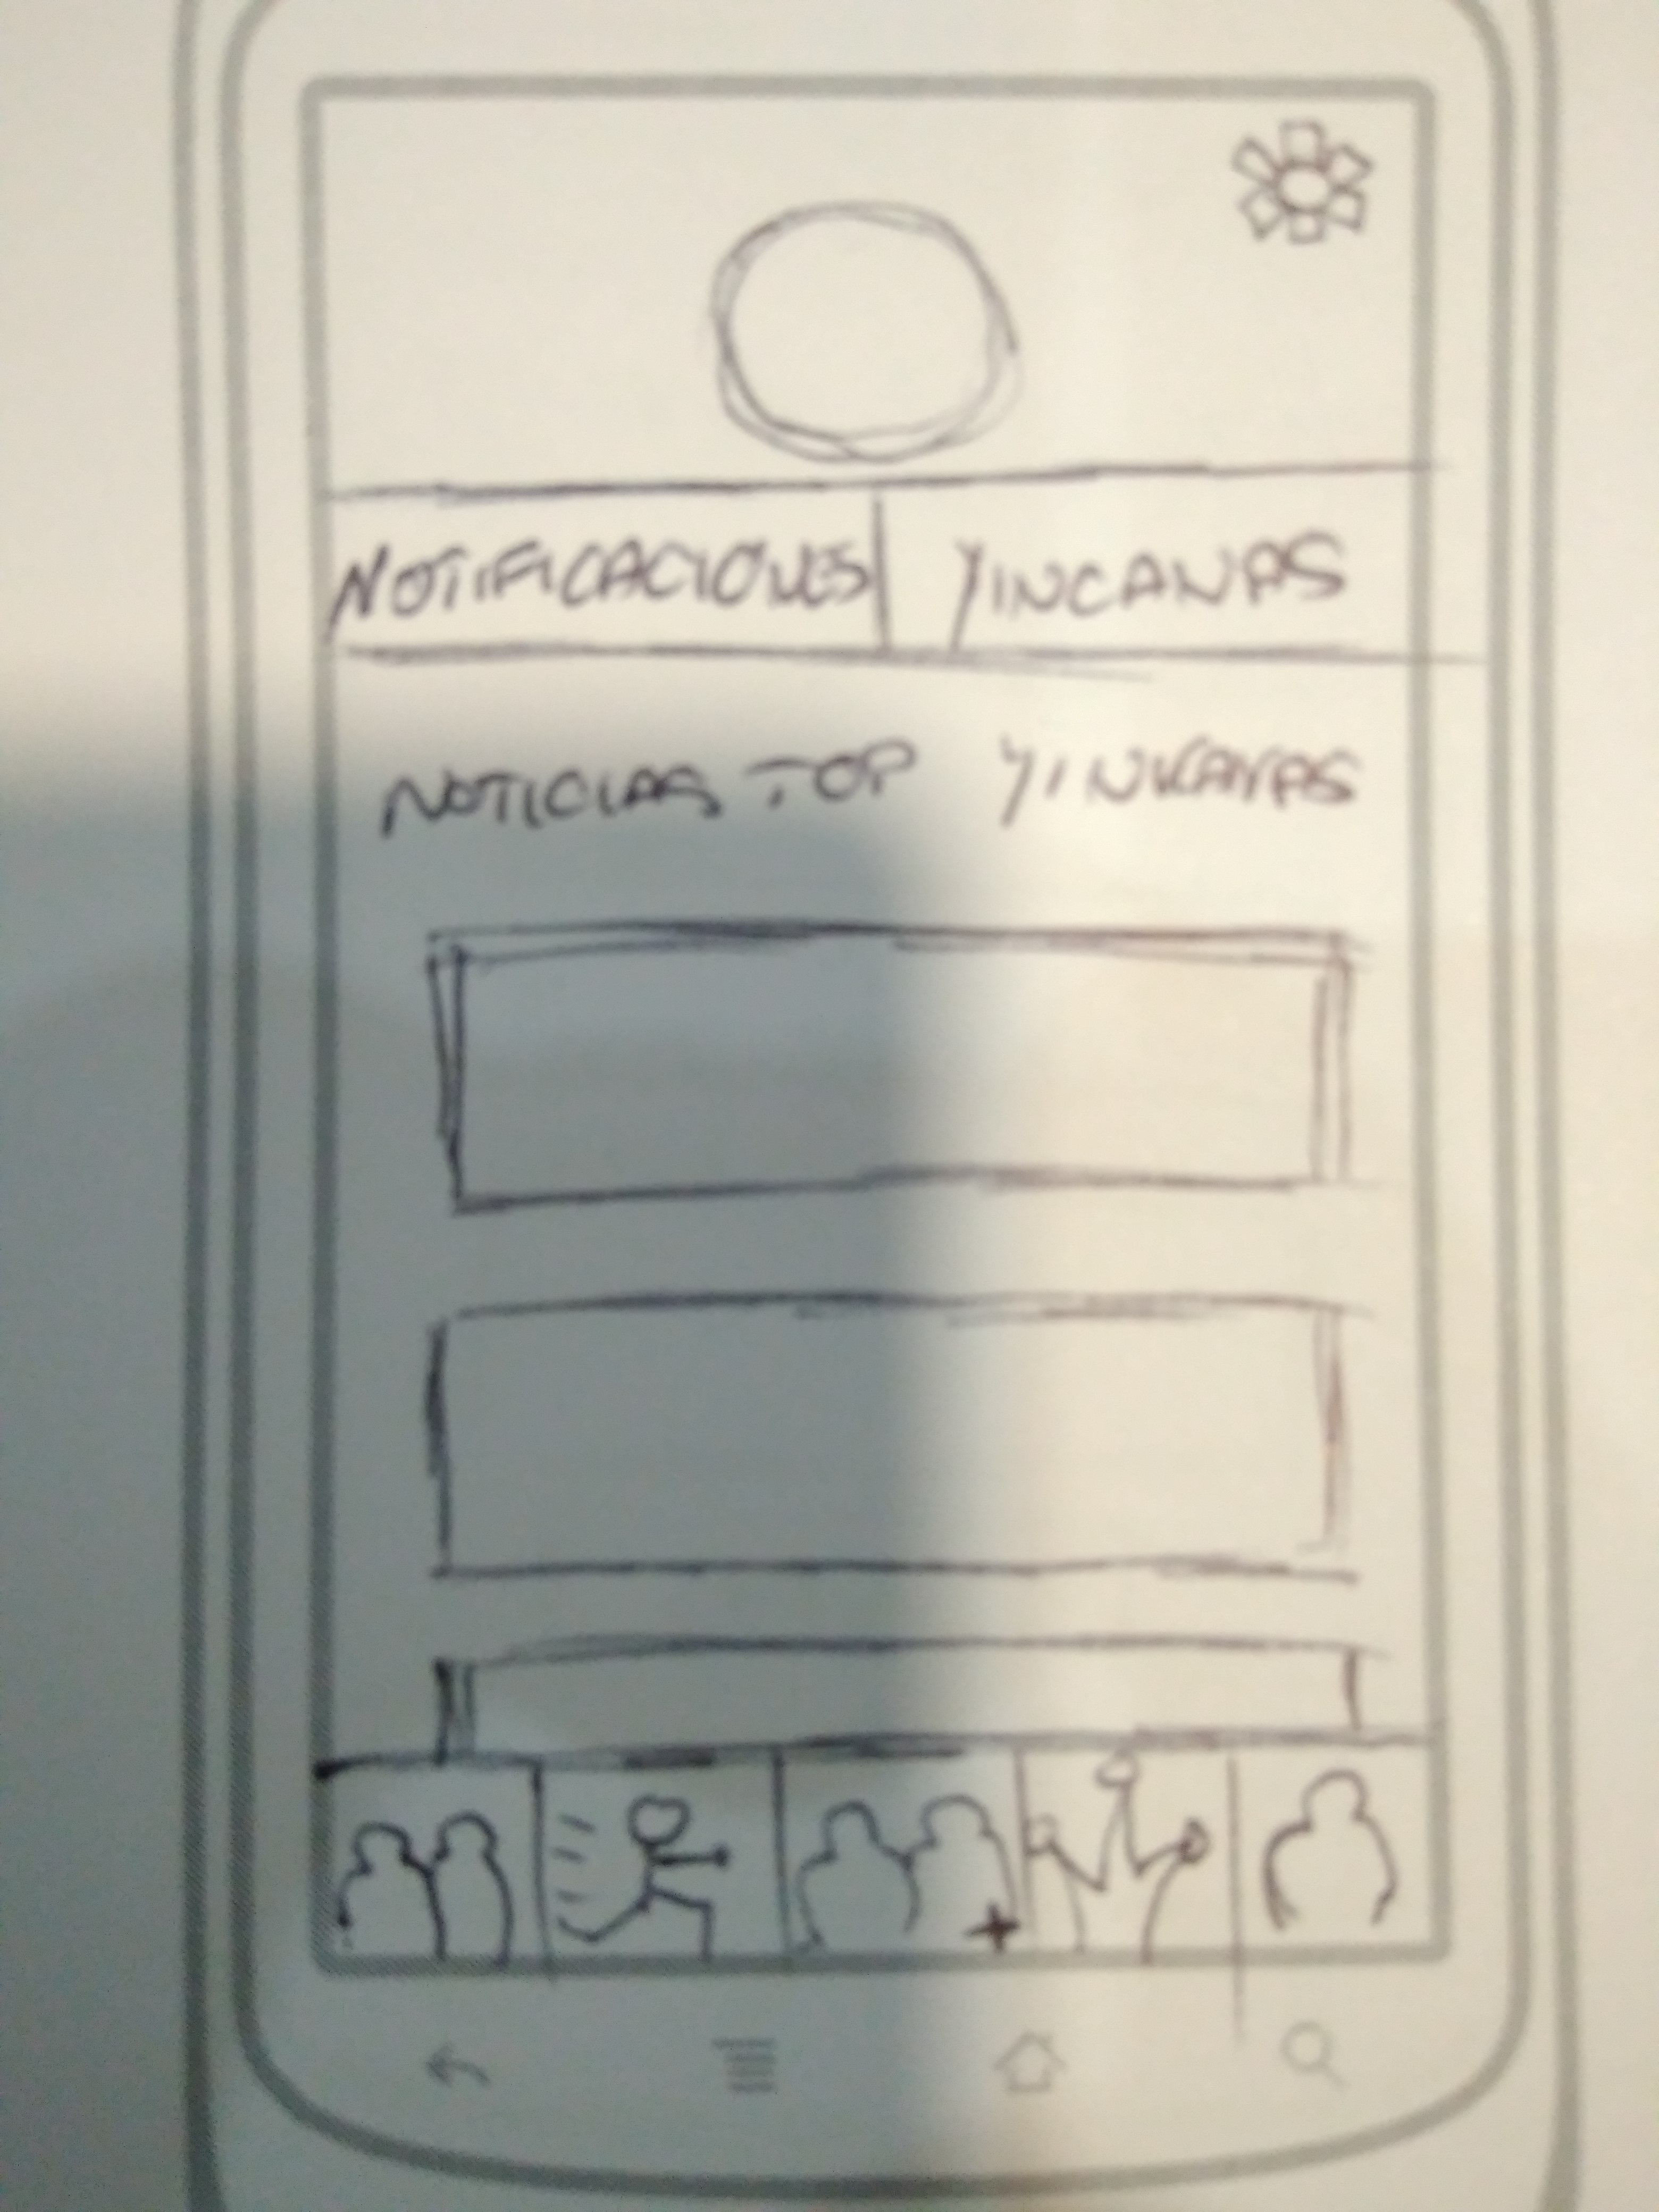 NOTIFICACIONES YINCANAS
NOTICIAS TOP YINKANAS